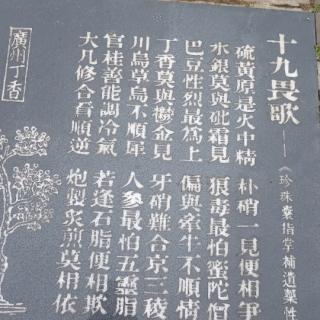 十九畏歌——《珍珠囊指掌補遺藥性
硫黃原是火中精 朴硝一見便相爭
水銀莫與砒霜見 狼毒最怕蜜陀僧
巴豆性烈最為上 偏與牽牛不順情
丁香莫與鬱金見 牙硝難合京三稜
川烏草烏不順犀 人參最怕五靈脂
官桂善能調冷氣 若逢石脂便相欺
大凡修合看順逆 炮製炙煎莫相依
廣州丁香